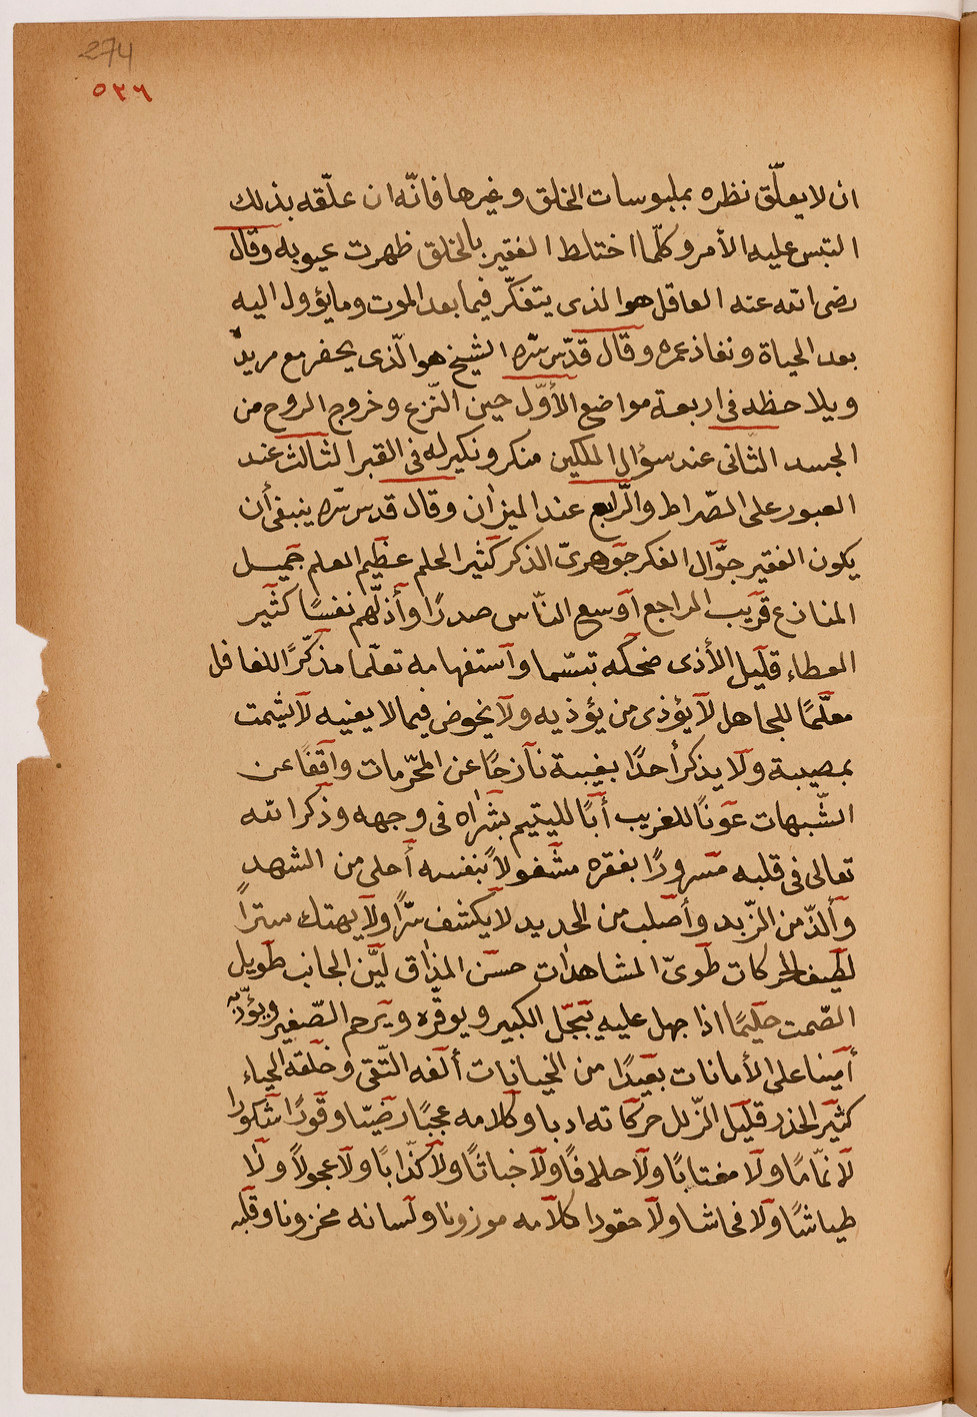 274
٥٣٦
ان لا يعلّق نظره بملبوسات الخلق وغيرها فانّه ان علّقه بذلك
التبس عليه الأمر وكلّما اختلط الفقير بالخلق ظهرت عيوبه وقال
رضى الله عنه العاقل هو الذى يتفكّر فيما بعد الموت وما يؤول اليه
بعد الحياة ونفاذ عمره وقال قدّس سّره الشيخ هو الّذى يحضر مع مريده
ويلاحظه فى اربعة مواضع الأوّل حين النّزع وخروج الروح من
الجسد الثّانى عند سؤال الملكين منكر ونكير له فى القبر الثالث عند
العبور على الصّراط والرّابع عند الميزان وقال قدس سّره ينبغى أن
يكون الفقير جوّال الفكر جوهرىّ الذكر كثير الحلم عظيم العلم جميل
المنازع قريب المراجع اوسع النّاس صدرًا وأذلّهم نفسًا كثير
العطاء قليل الأذى ضحكه تبسّما واستفهامه تعلّما مذكّرًا للغافل
معلّمًا للجاهل لا يؤذى من يؤذيه ولا يخوض فيما لا يعنيه لا يشمت
بمصيبة ولا يذكر أحدًا بغيبة نازحًا عن المحّرمات واقفًا عن
الشّبهات عونًا للغريب أبًا لليتيم بشراه فى وجهه وذكر الله
تعالى فى قلبه مسرورًا بفقره مشغولاً بنفسه أحلى من الشهد
وألذّ من الزّبد وأصلب من الحديد لا يكشف سّرًا ولا يهتك سترًا
لطيف الحركات طوىّ المشاهدات حسن المذاق ليّن الجانب طويل
الصّمت حليمًا اذا جهل عليه يبجّل الكبير ويوقّره ويرحم الصّغير ويؤدّبه
أمينا على الأمانات بعيدًا من الخيانات ألفه التّقى وخلقه الحياء
كثير الحذر قليل الزّلل حركاته ادبا وكلامه عجبًا رضيّا وقورًا شكورا
لا نمّامًا ولا مغتابًا ولا حلافًا ولا خبائثًا ولا كذّابًا ولا عجولاً ولا
طياشًا ولا فحاشا ولا حقودا كلامه موزونا ولسانه مخزونا وقلبه